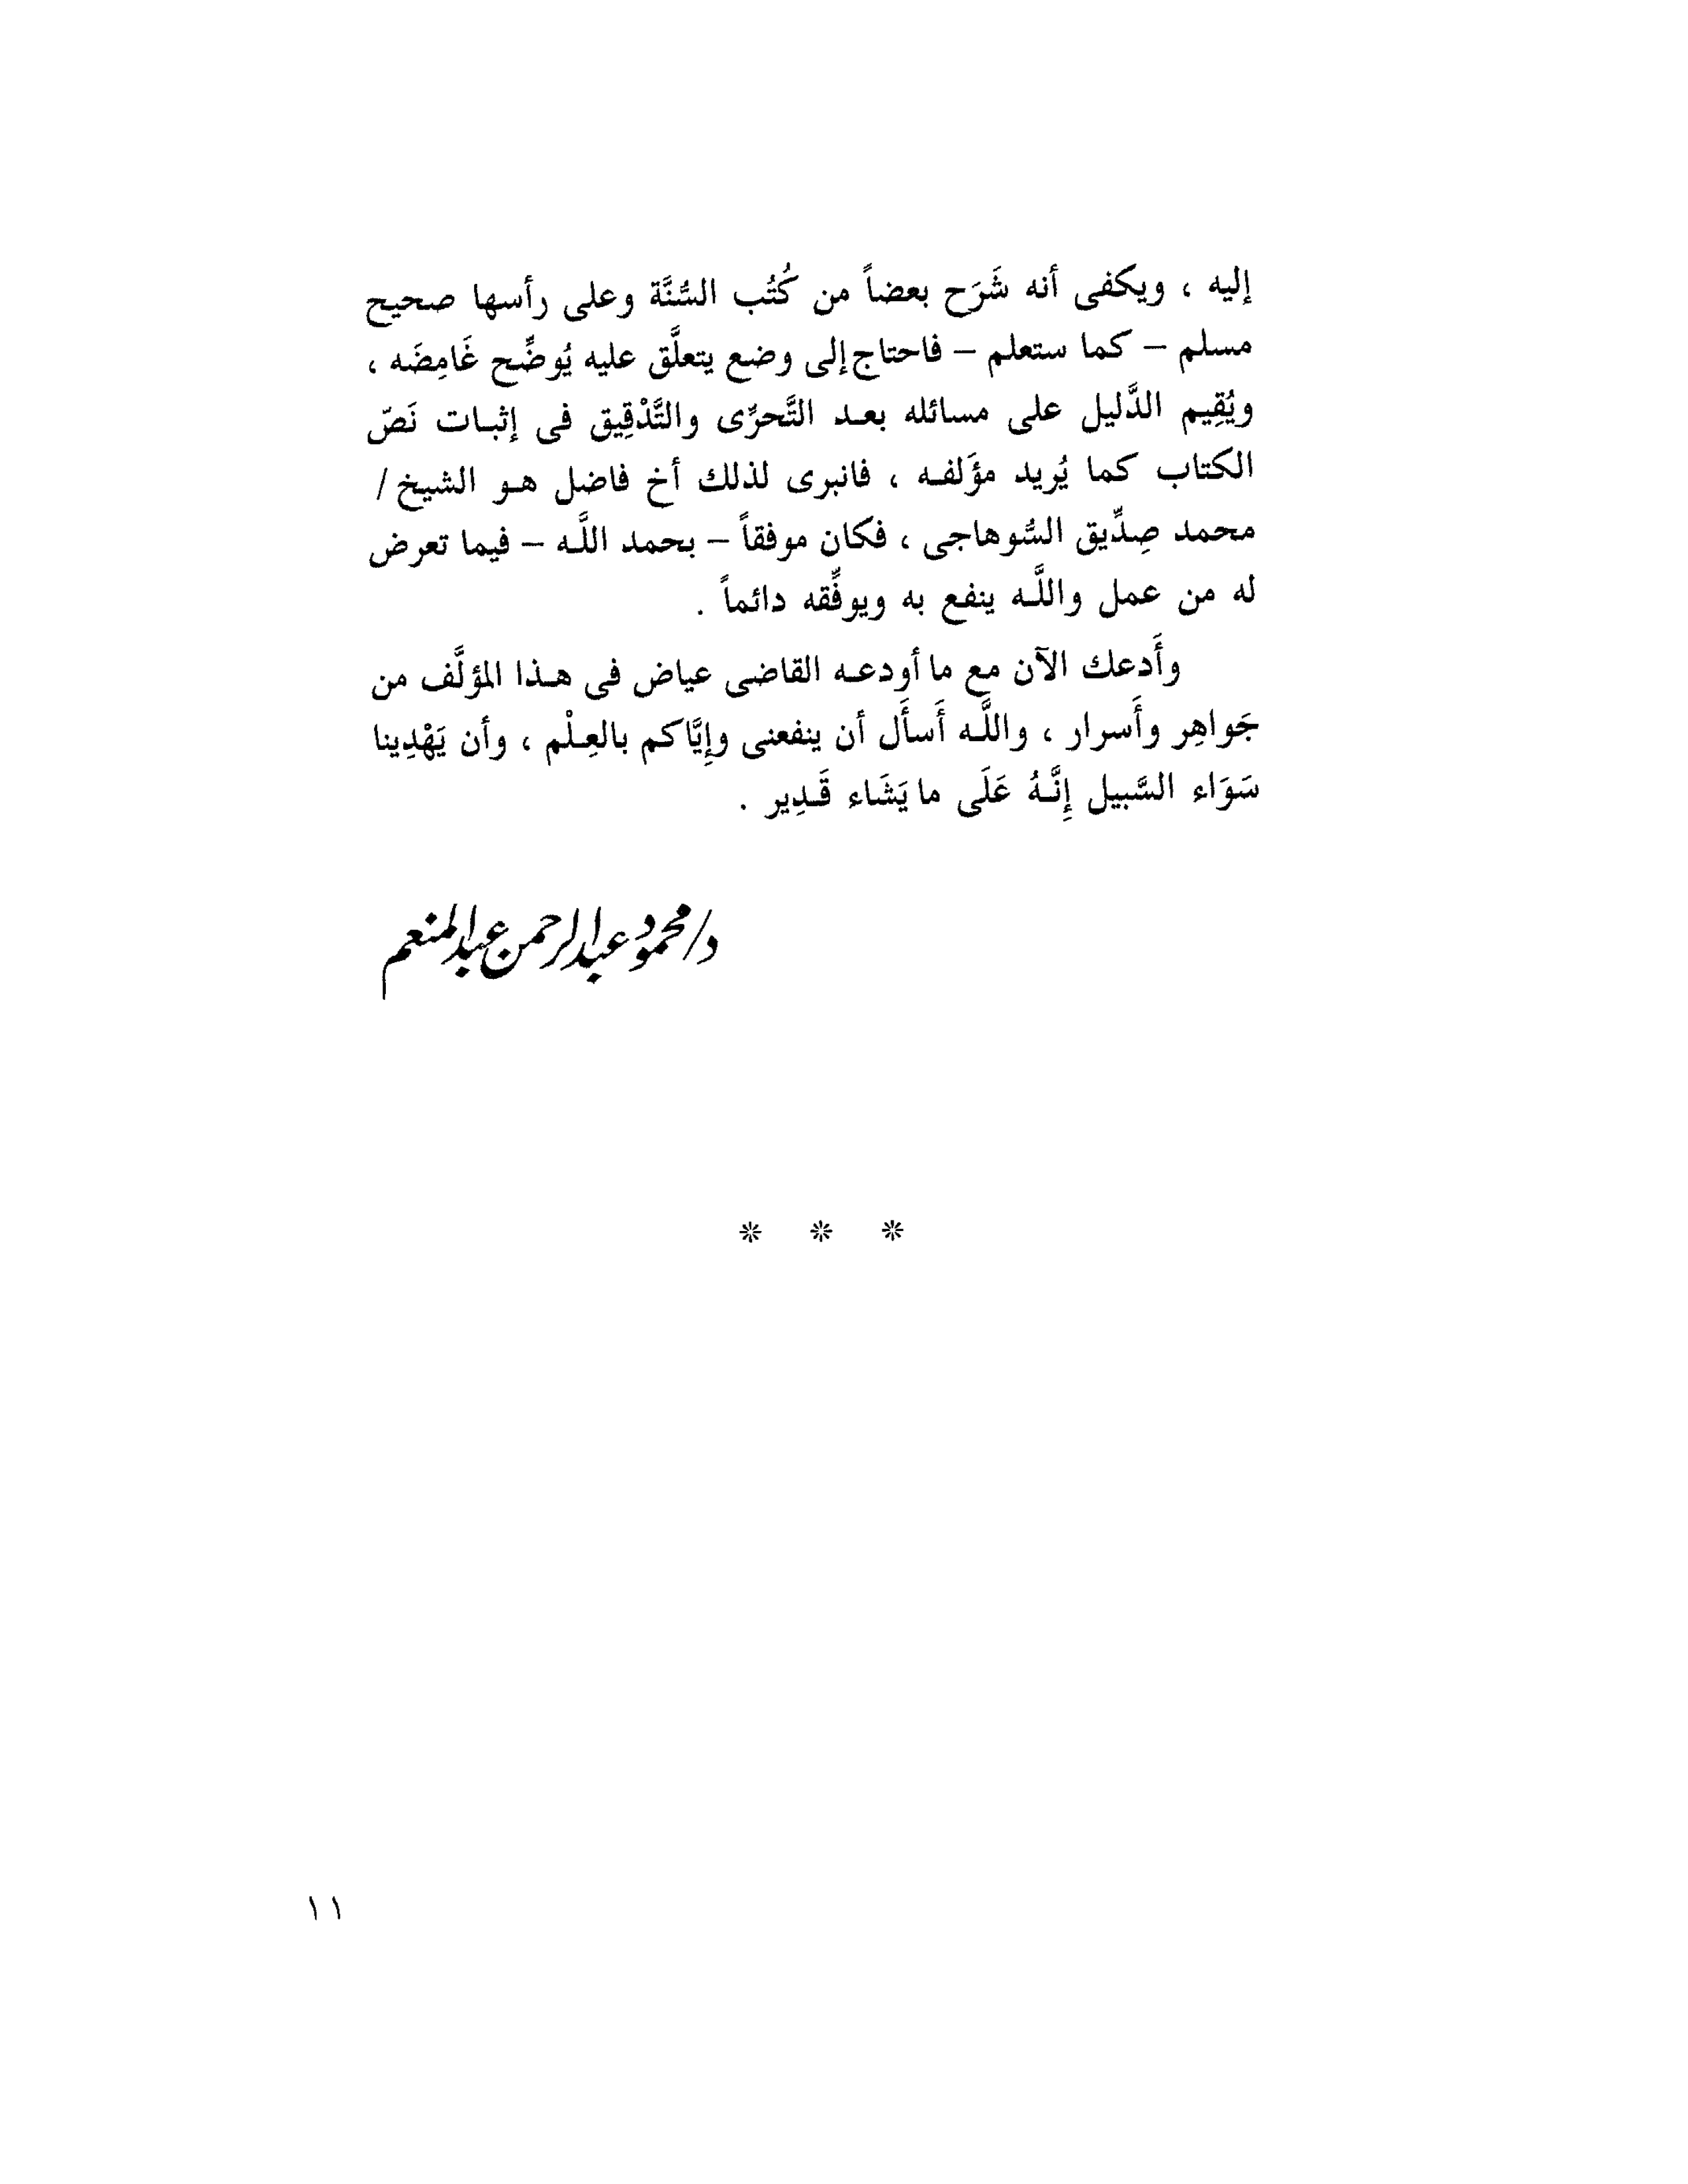 إليه ، ويكفى أنه شَرَح بعضاً من كُتُب السُّنَّة وعلى رأسها صحيح
مسلم – كما ستعلم – فاحتاج إلى وضع يتعلَّق عليه يُوضِّح غَامِضَه ،
ويُقِيم الدَّليل على مسائله بعد التَّحرِّى والتَّدْقِيق فى إثبات نَصّ
الكتاب كما يُريد مؤَلفه ، فانبرى لذلك أخ فاضل هو الشيخ /
محمد صِدِّيق السُّوهاجى ، فكان موفقاً – بحمد اللَّه – فيما تعرض
له من عمل واللَّه ينفع به ويوفِّقه دائماً .
وأَدعك الآن مع ما أودعه القاضى عياض فى هذا المؤلَّف من
جَواهِر وأَسرار ، واللَّه أَسأَل أن ينفعنى وإِيَّاكم بالعِلْم ، وأن يَهْدِينا
سَوَاء السَّبيل إِنَّهُ عَلَى ما يَشَاء قَدِير .
د/محمود عبدالرحمن عبدالمنعم
* * *
١١